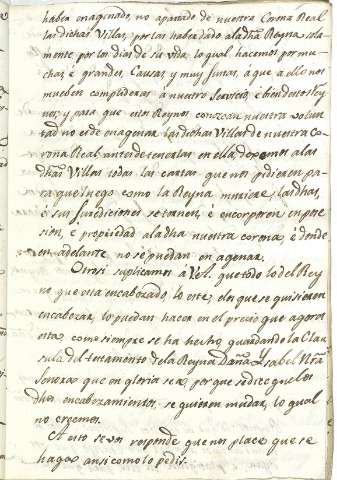 haber enagenado, no apartado de nuestra Corona Real
las dichas Villas, por las haber dado a la dha Reyna sola-
mente por los dias de su vida, lo qual hacemos por mu-
chas, è grandes, Causas, y muy justas, à que a ello nos
mueben complideras à nuestro servicio, è bien destos Rey
nos, y para que estos Reynos conozcan nuestra volun
tad no es de enagenar las dichas Villas de nuestra Co-
rona Real, antes de tenerlas en ella, daremos a las
dhas Villas todas las cartas que nos pidieren pa-
ra que luego como la Reyna muriere, las dhas,
è sus jurediciones se tornen, è encorporen en pose
sion, è propiedad a la dha nuestra corona, è donde
en adelante no se puedan enagenar.
Otrosi suplicamos à V.A. que todo lo del Rey
no que esta encabezado, lo este, è lo que se quisieren
encabezar, lo puedan hacer en el precio que agora
esta, como siempre se ha hecho, guardando la Clau
sula del testamento de la Reyna Doña Ysabel Ntrã
Señora que en gloria sea, porque se dice que los
dhos encabezamientos, se quieren mudar, lo qual
no creemos.
A esto se vos responde que nos place que se
haga ansi como lo pedis.